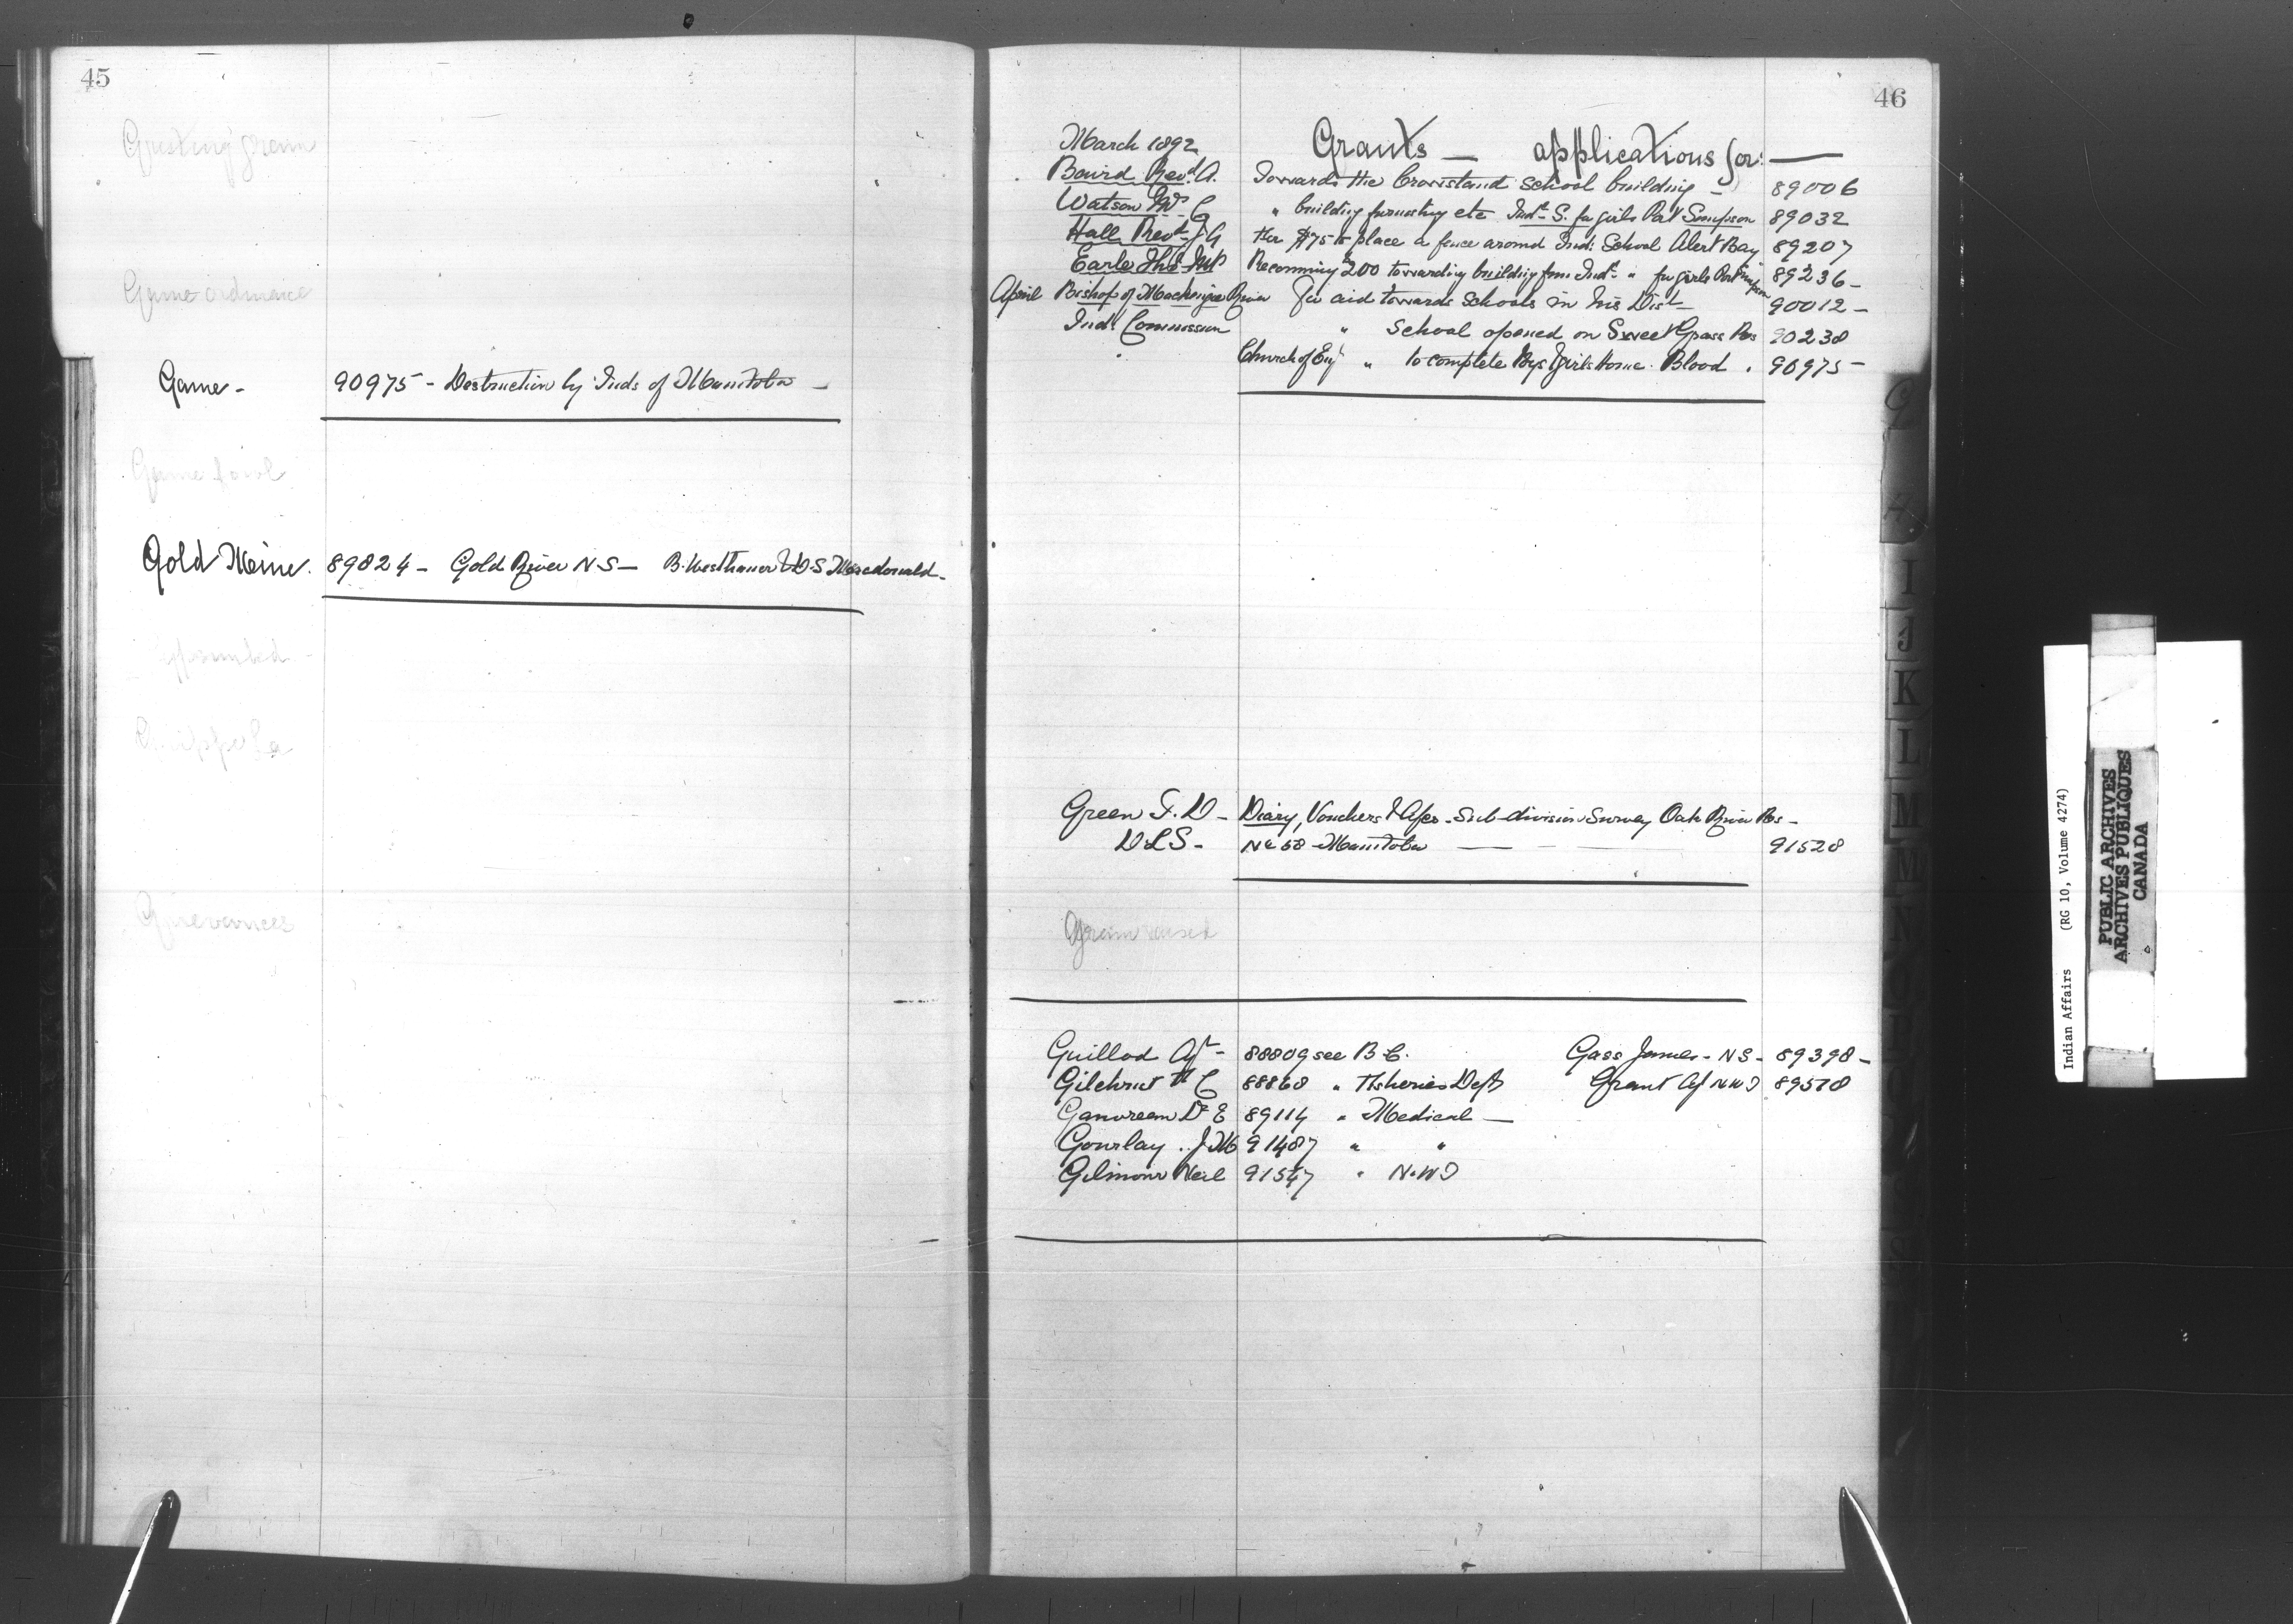 45
Game ordinance
Game - 90975 - Destruction by Inds of Manitoba -
Game fowl
Gold Mine. 89824 - Gold River N-S - B. Westhaver & D.S Macdonald -
Grievances
46
March 1892 Grants - applications for: -
Baird Revd. A. Towards the Crowstand School building - 89006
Watson Mrs C " building furnishing etc Indl. S. for girls Port Simpson 89032
Hall Revd. J G for $75 to place a fence around Ind: School Alert Bay 89207
Earle Ths MP Recomming $200 towarding building for Indl. " for girls Port Simpson 89236 -
April Bishop of Mackenzie River For aid towards Schools in his Dist - 90012 -
Ind: Commission " School opened on Sweet Grass Res 90238
Church of Eng " to complete Boys & girls Home. Blood . 90975 -
Green F. D - Diary, Vouchers & - Sub-division Survey Oak River Res -
D L S - No 58 - Manitoba 91528
Grain raised
Guillod Agt - 88809 see B-C. Gass James - N S - 89398 -
Gilchrist H C 88868 " Fisheries Dept Grant Agt N W T 89578
Dr E 89114 " Medical -
Gourlay . J M 91487 " "
Gilmour Neil 91547 " N.W T
G
H.
I
J
K
L
M
N
Indian Affairs (RG 10, Volume 4274)
PUBLIC ARCHIVES
ARCHIVES PUBLIQUES
CANADA